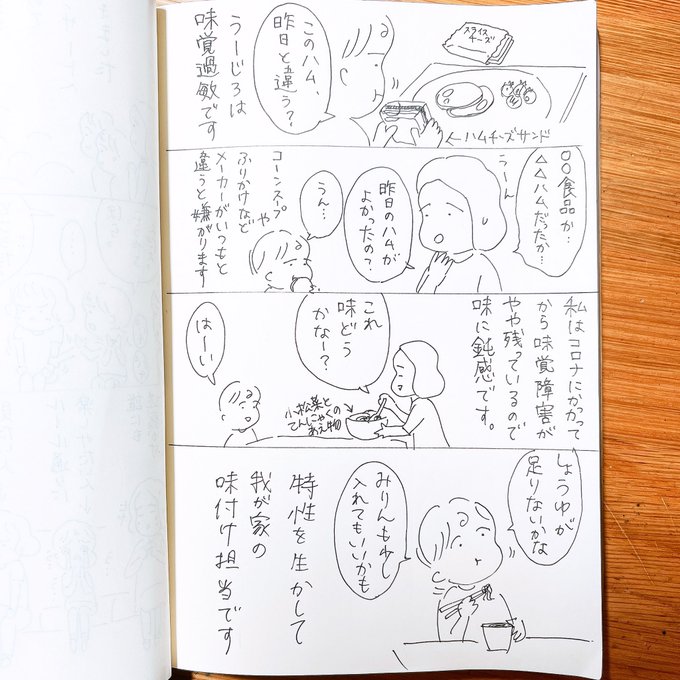 スライス
チーズ
このハム、
昨日と違う？
←ハムチーズサンド
うーじろは
味覚過敏です
〇〇食品か…
△△ハムだったか…
うーん
昨日のハムが
よかったの？
うん…
コーンスープや
ふりかけなど
メーカーがいつもと
違うと嫌がります
私はコロナにかかって
から味覚障害が
やや残っているので
味に鈍感です。
これ
味どう
かなー？
小松菜と
こんにゃくの
あえ物
はーい
しょうゆが
足りないかな
みりんも少し
入れてもいいかも
特性を生かして
我が家の
味付け担当です